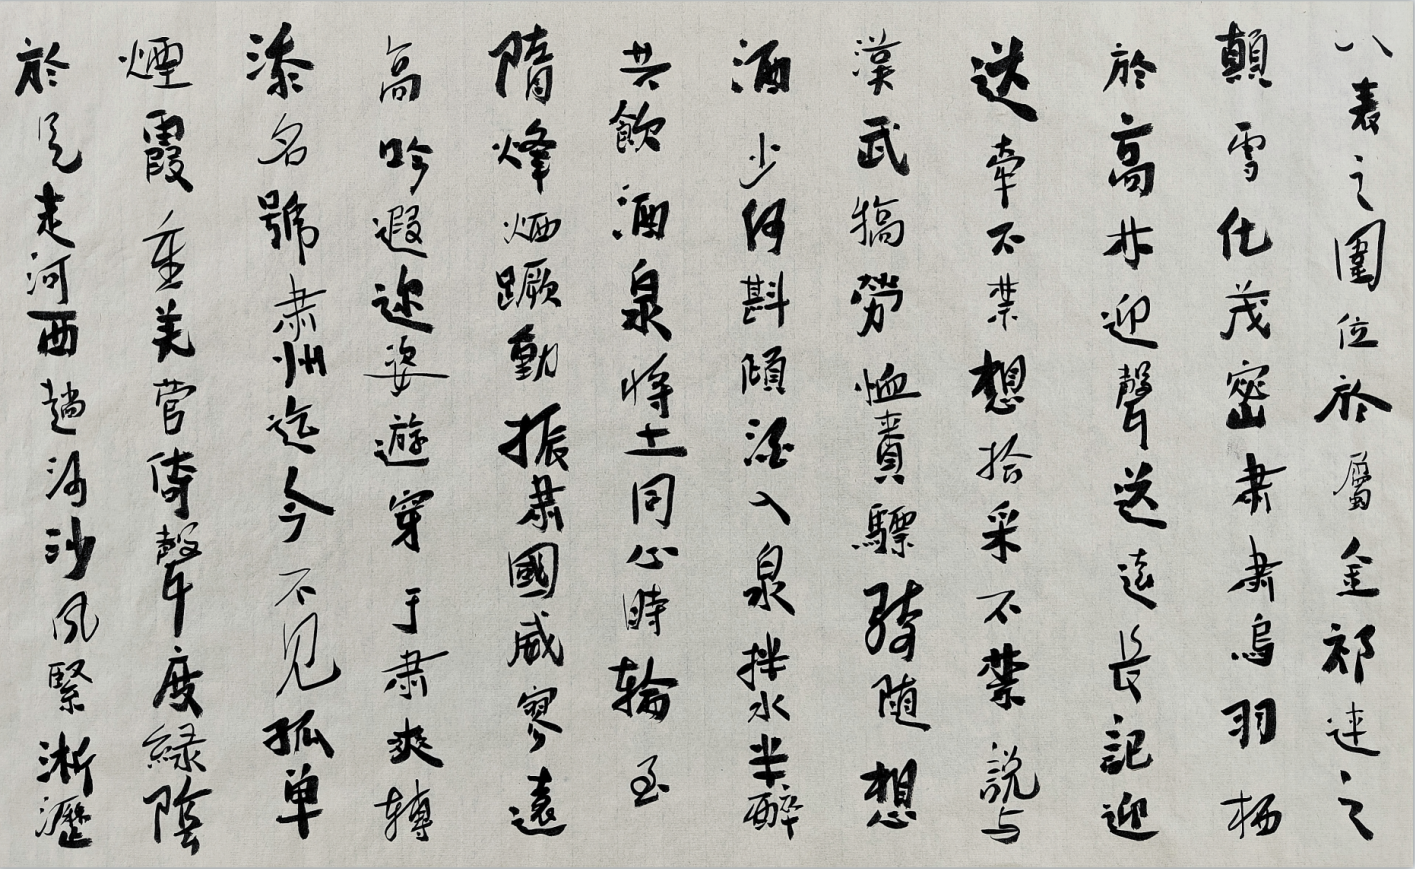 八表之圍位於屬金祁連之
顛雪化茂密肅肅烏羽栖
於高林迎聲送遠長記迎
送牽不禁想拾采不禁說与
漢武犒勞恤賚驃騎随想
酒少何斟頤酒入泉拌水半醉
共飲酒泉將士同心時輪至
隋烽烟蹶動振肅國威寥遠
高吟遐迩姿遊穿于肅爽轉
添名號肅州迄今不见孤单
煙霞重美菅倚聲度緑陰
於是走河西趟河沙风緊淅瀝